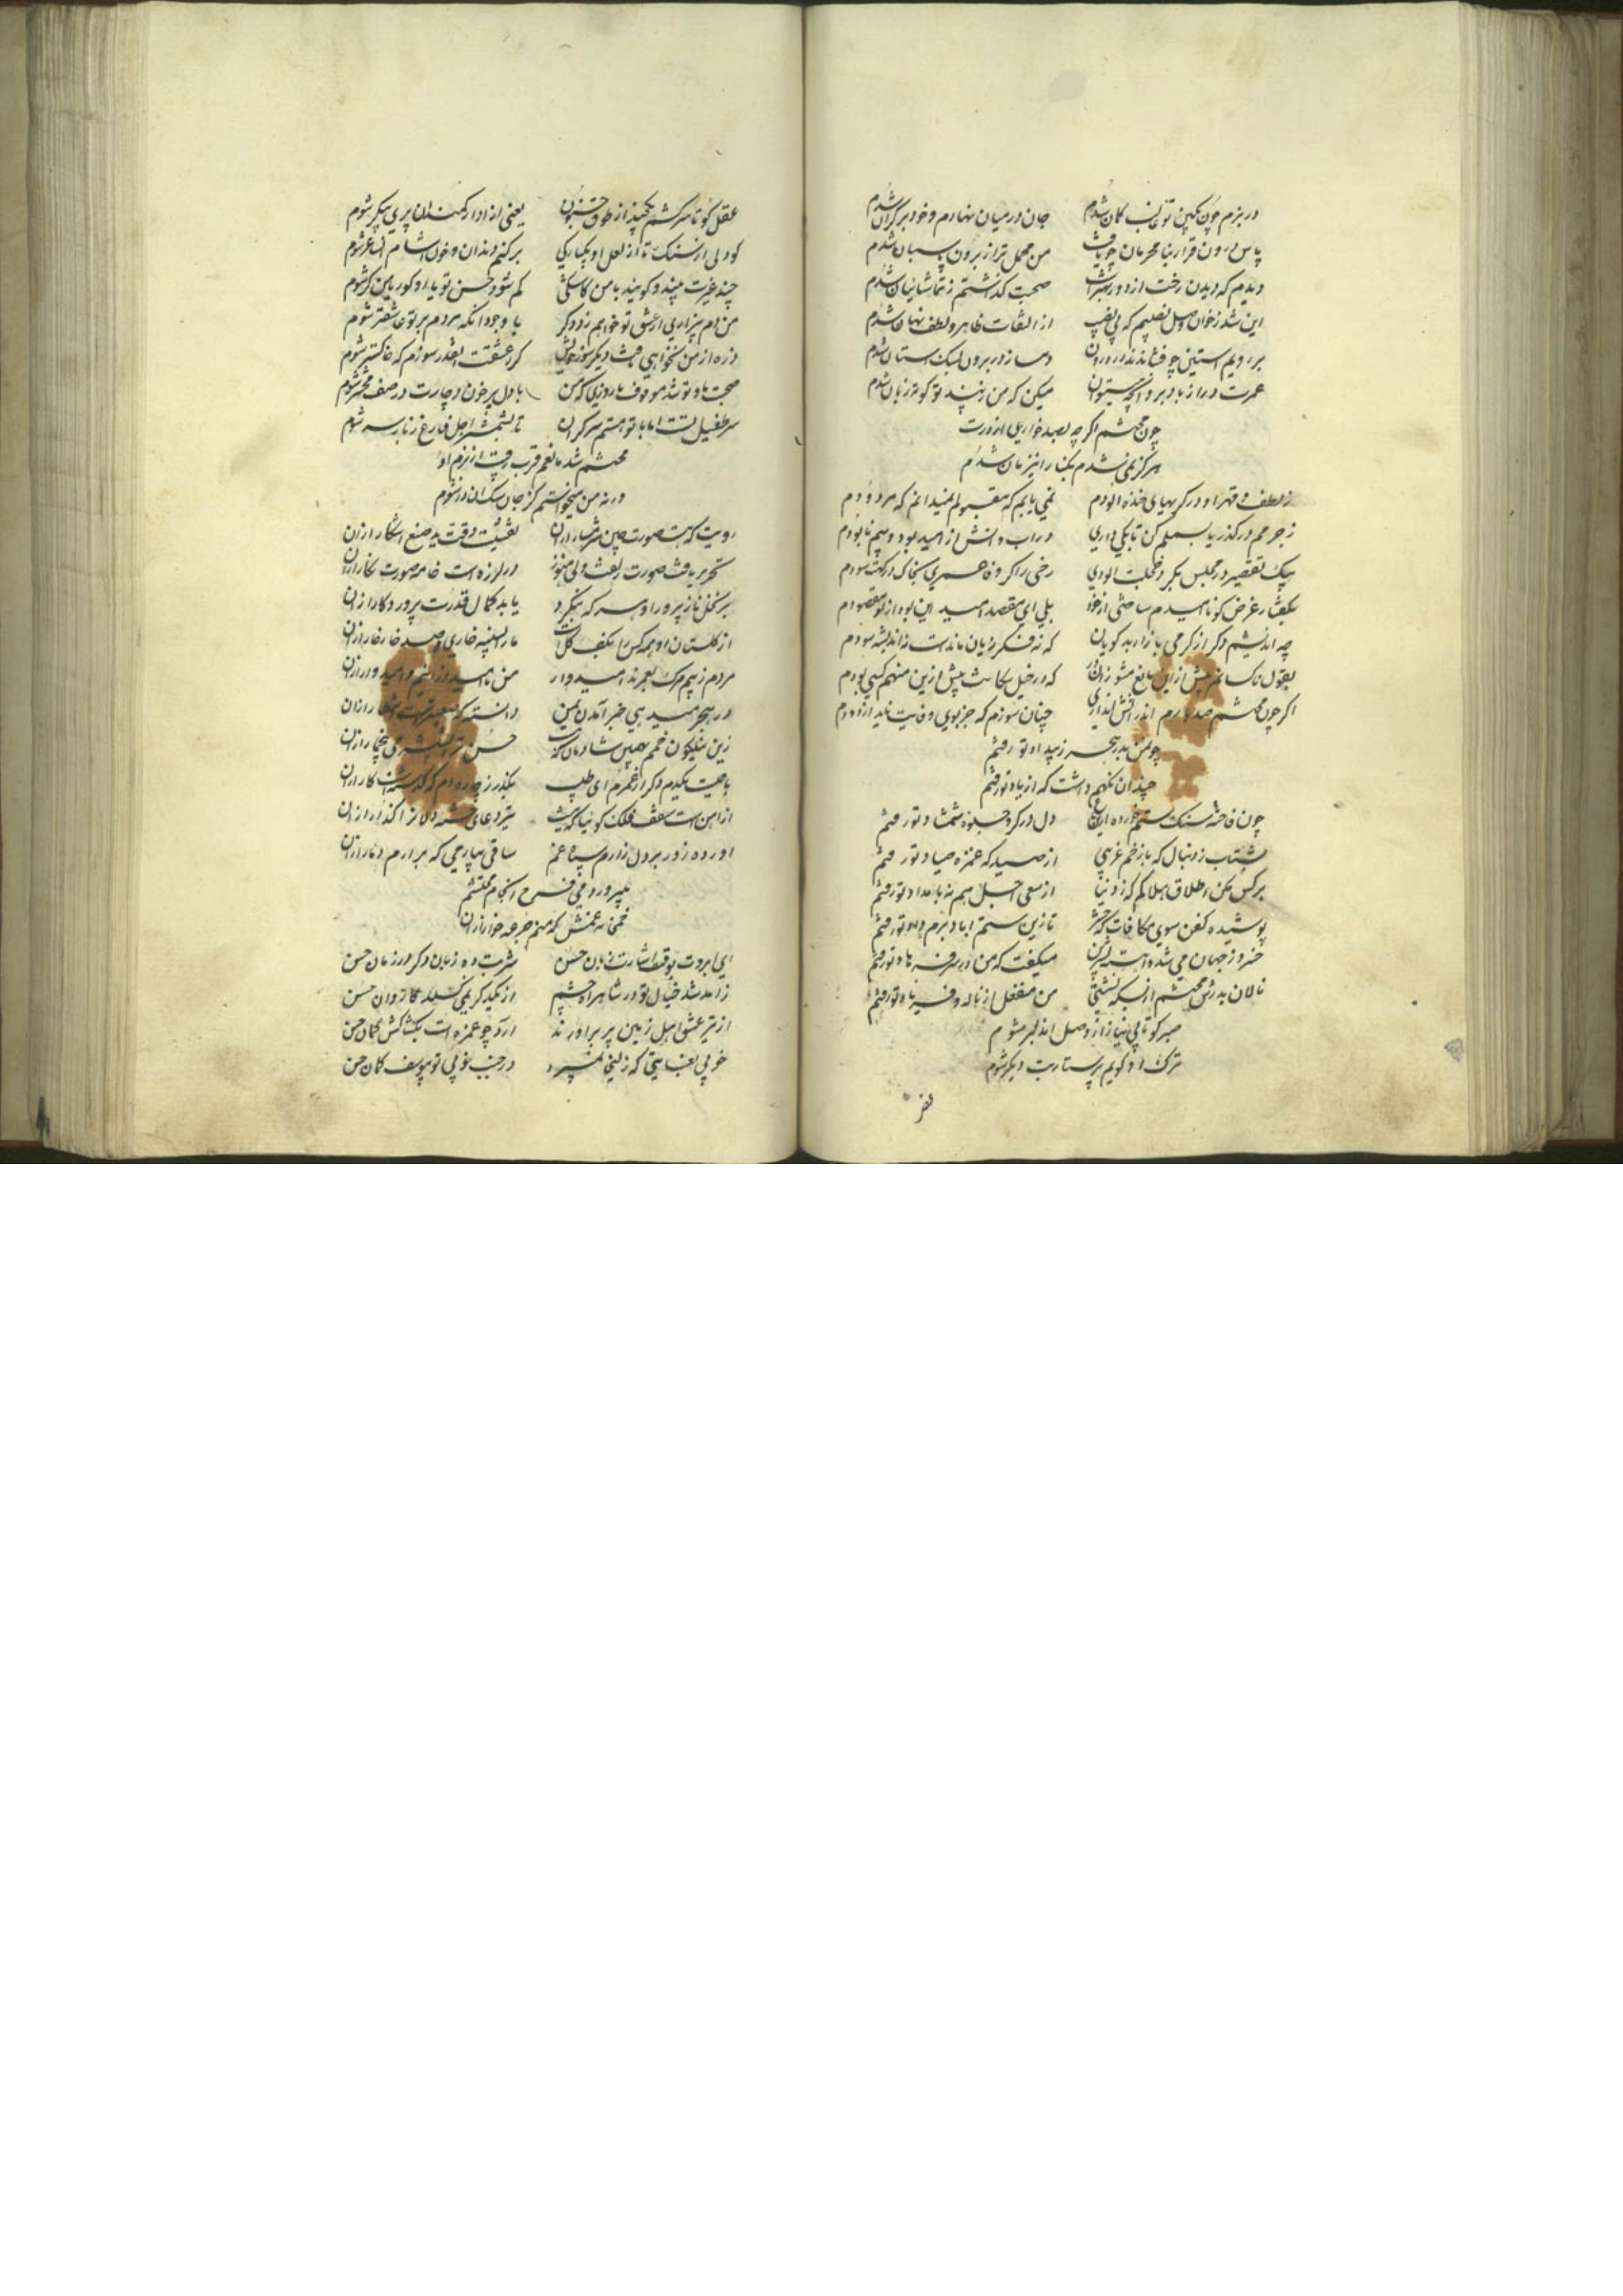 در بزم چون بکین تو غالب گمان شدم جان در میان نهادم و خود بر کران شدم
پاس درون قرار بنا محرمان چو یافت من محمل تو از برون پاسبان شدم
دیدم که دیدن رخت از دور بهتر است صحبت گذاشتم ز تماشائیان شدم
این شد ز خوان وصل نصیبم که بی نصیب از التفات ظاهر و لطف نهان شدم
بر رویم استین چو فشاندند در درون دمساز در برون بسک استان شدم
عمرت دراز باد برو انچه میتوان میکن که من ز پند تو کوته زبان شدم
چون محتشم اگر چه بصد خواری از درت
هرگز نمی شدم بکنار از نیز مان شدم
ز لطف و قهر او در گریهای خنده الودم نمی یابم که مقبولم نمیدانم که مردودم
ز جرمم در گذر یا بسملم کن تا بکی داری در اب و اتش از امید بود و بیم نابودم
بیک تقصیر در مجلس بگرد خجلت الودی رخی را کز وفا عمری بخاک درگهت سودم
بگفتا رغرض گو ناامیدم ساختی از خود بلی ای مقصد امید این بود از تو مقصودم
چه اندیشم دگر از گرمی بازار بدگویان که نه فکر زیان ماندست نه اندیشه سودم
بقول ناکسانم بیش ازین مانع مشو زان در که در خیل سکانت پیش ازین منهم کسی بودم
اگر چون محتشم صد بارم اندر اتش اندازی چنان سوزم که جز بوی وفایت ناید از دودم
چو من بدر هجر ز بیداد تو رفتم
چندان نکهم داشت که از یاد تو رفتم
چون فاخته سنک ستم خورده ازین باغ دل در گرو جلوه شمشاد تو رفتم
بشتاب ز دنبال که با زخم غریبی از صیدکه غمزه صیاد تو رفتم
بر کس مکن اطلاق هلاکم که ز دنیا از سعی اجل هم نه بامداد تو رفتم
پوشیده کفن سوی مکافات که حشر تا زین ستم اباد بزم داد تو رفتم
خسرو ز جهان می شد و اهسته بشیرین میگفت که من در سر فرهاد تو رفتم
نالان بدرش محتشم از بسکه نشستی من منفعل از ناله و فریاد تو رفتم
صبر کو تا بی نیاز از وصل ان دلبر شوم
ترک او گویم پرستار بت دیگر شوم
عقل کو تا سر کشم یکچند از طوق جنون یعنی ازاد از کمند ان پری پیکر شوم
کو دلی از سنک تا از لعل او یکبارگی بر کنم دندان و خون اشام ان ساغر شوم
چند غیرت بیند و گویند با من کاشکی کم شود حسن تو یا او کور یا من کر شوم
من دم بیزاری از عشق تو خواهم زد دگر با وجود انکه هر دم بر تو عاشقتر شوم
ذره از من نخواهی یافت دیگر سوز خویش گر ز عشقت انقدر سوزم که خاکستر شوم
صحبت ما و تو شد موقوف تا روزی که من با دل پر خون دچارت در صف محشر شوم
سر طفیل تست اما با تو هستم سر گران تا بشمشیر اجل فارغ ز بار سر شوم
محتشم شد مانعم قرب رقیب از بزم او
ورنه من میخواستم کز جان سک ان در شوم
رویت که هست صورت چین شرمسار از ان نقشیست دقت ید صنع اشکار از ان
تحریر یافت صورت زلفت ولی هنوز در لرزه است خامه صورت نگار از ان
بر نخل نازپرور او هر که بنگرد یابد کمال قدرت پروردگار از ان
از گلستان او همه کس را بکف گلست ما را بسینه خاری و صد خار خار از ان
مردم ز بیم مرک بعمرند امیدوار من ناامید از انم و امیدوار از ان
در هجر میدهی خبر امدن بمن دانسته که صعبترست انتظار از ان
زین نیلگون خمم بهمین شادمان که حسن تو را شرابی و ما را خمار از ان
باقیست یکدم دگر از عمرم ای طبیب بگذر ز چاره ام که گذشتست کار از ان
از اهن است سقف فلک گوئیا که نیست تیر دعای خسته دلان را گذار از ان
اورده زور بر دل زارم سپاه غم ساقی بیار می که برارم دمار از ان
میپرورد می فرح انجام محتشم
خمخانه غمش که منم جرعه خوار از ان
ای ابرویت بوقت اشارت زبان حسن شرمت ده زبان دگر در زمان حسن
زاهد شد خیال تو در شاهراه چشم از یکدگر نمی گسلد کاروان حسن
از تیر عشق اهل زمین پر براورند ارد چو غمزه ات بکشاکش کمان حسن
خوبی بغایتی که زلیخا نمیبرد در جنب خوبی تو بیوسف گمان حسن